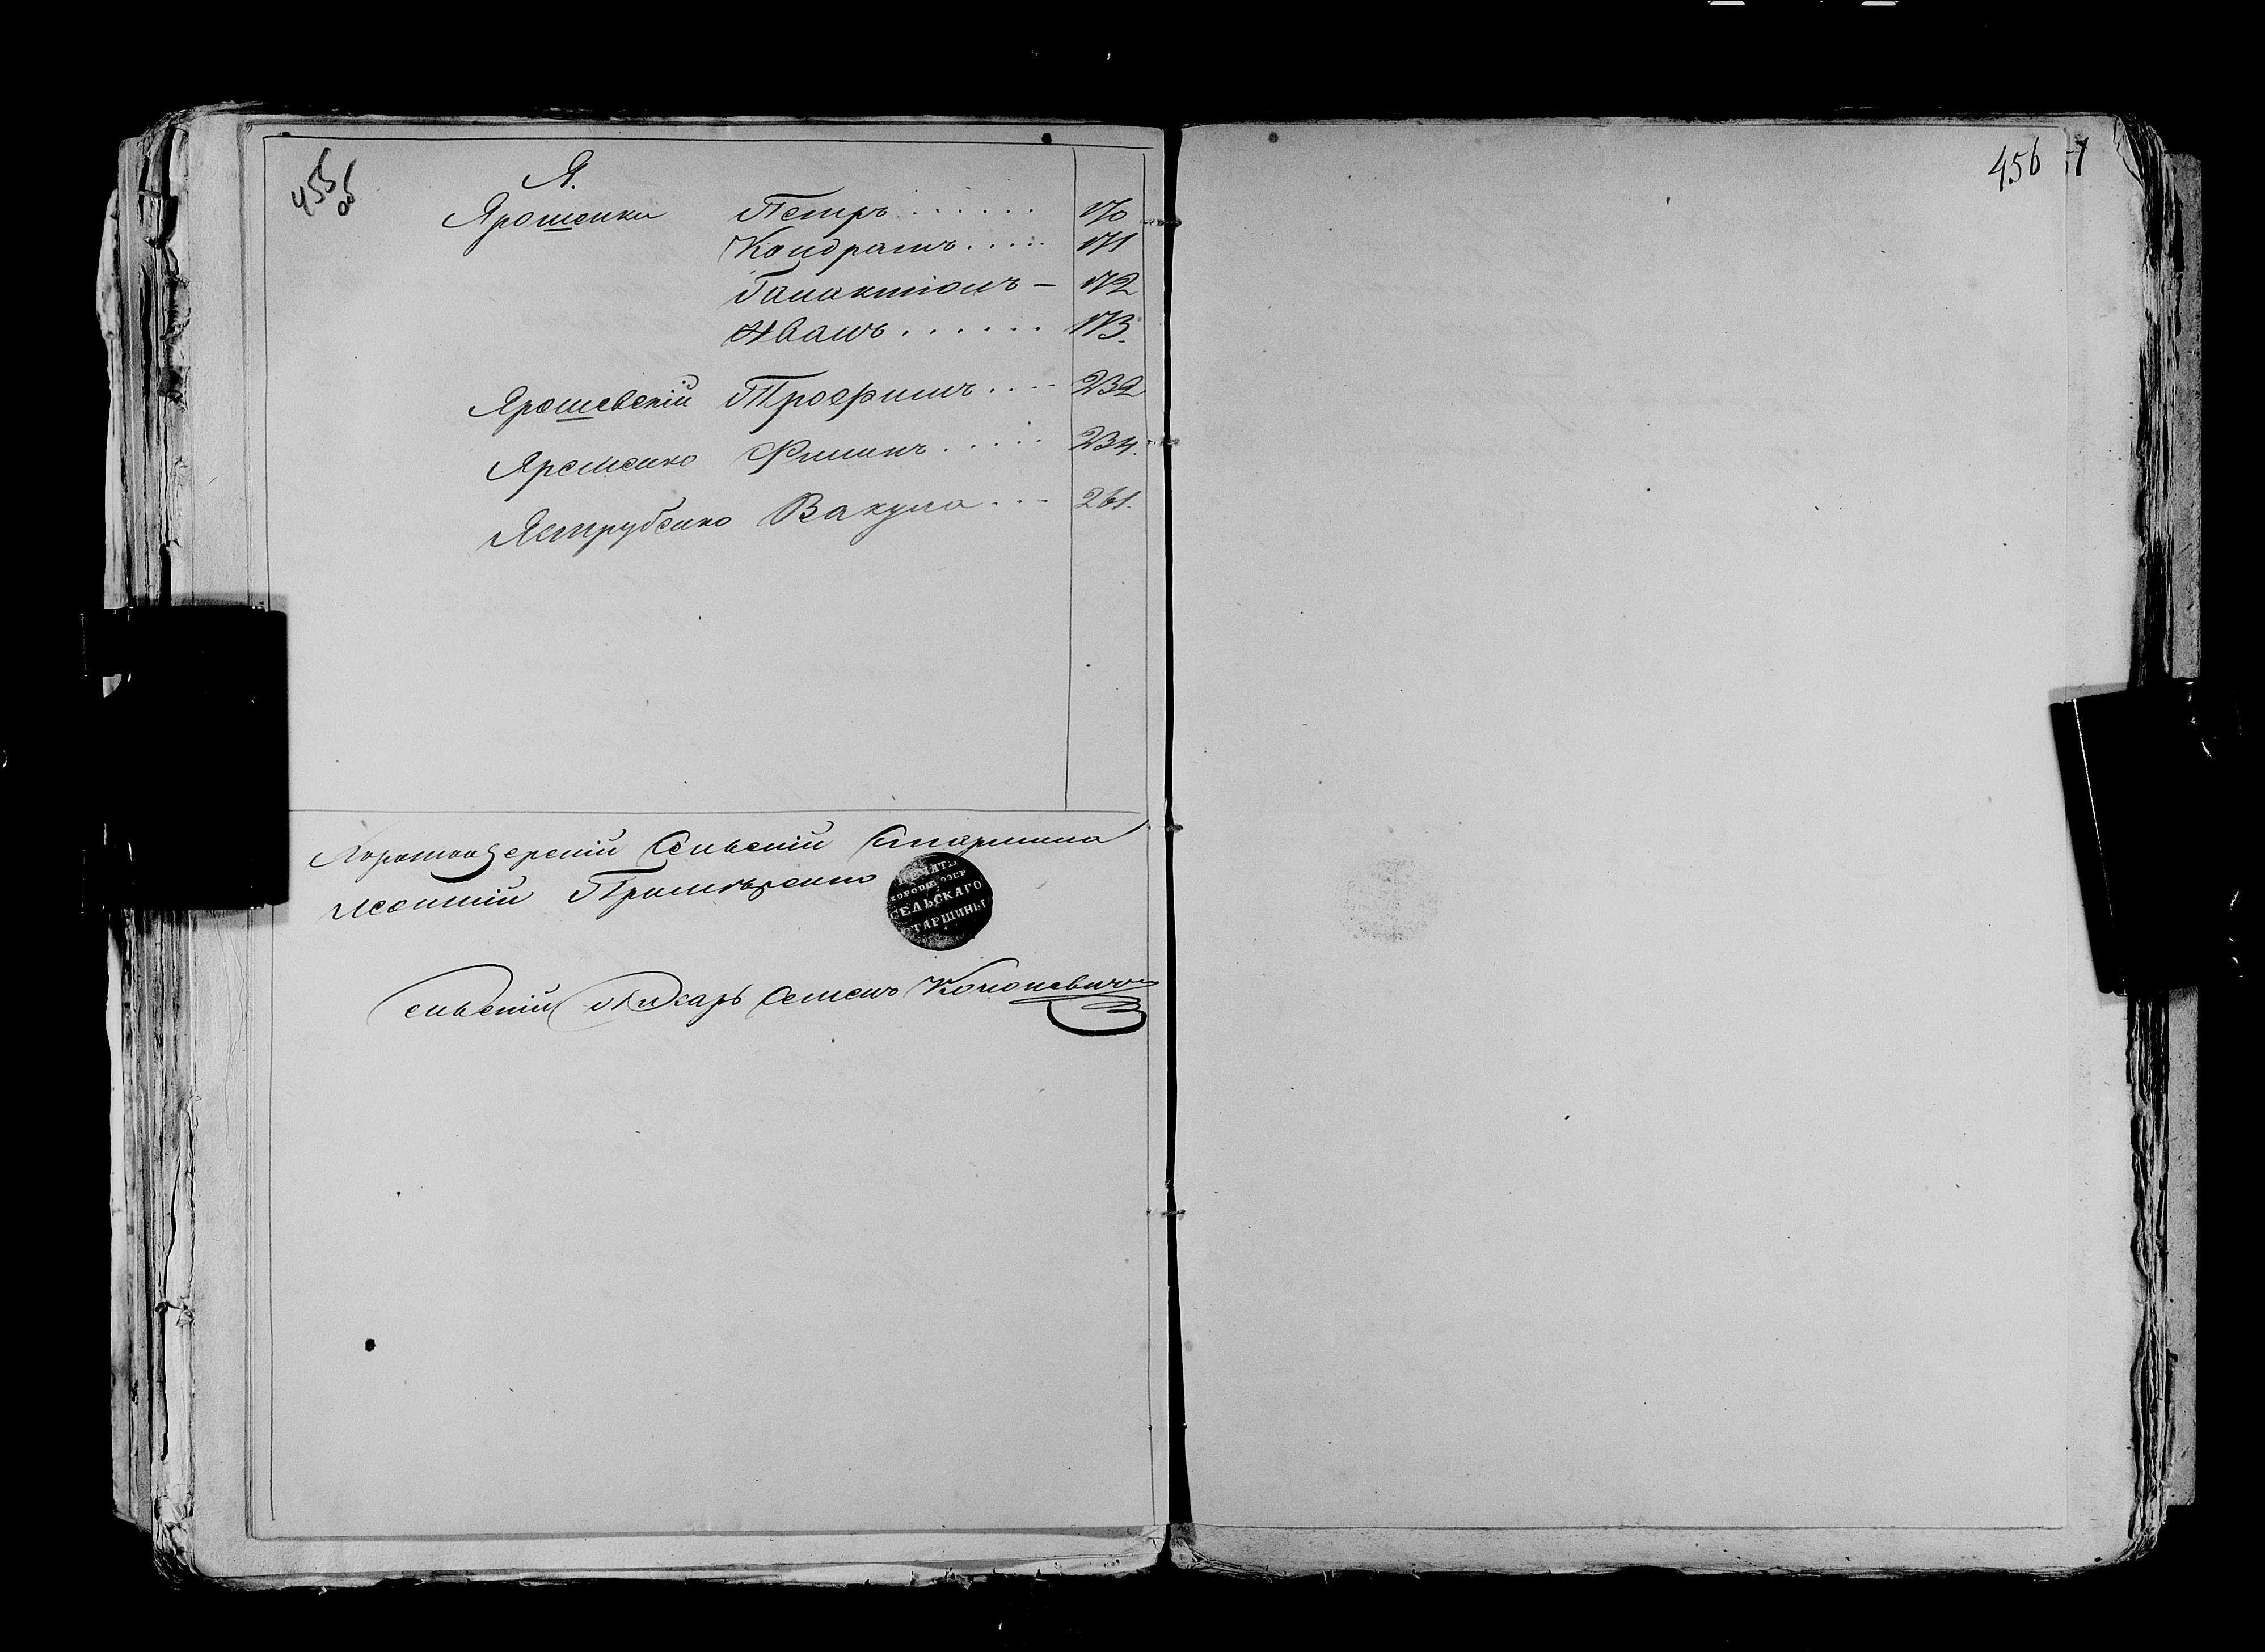 455
об
Я.
Ярошенки Петръ . . . . . . 170
Кондратъ . . . . . 171
Галактіонъ – 172
Иванъ . . . . . . 173.
Ярошевскій Трофимъ . . . . 232
Яременко Филипъ . . . . . 234.
Яструбенко Вакула . . . 261.
Хорошоозерскій Сельскій Старшина
Леонтій
ПЕЧАТЬ
ХОРОШЕ ОЗЕР
СЕЛЬСКАГО
СТАРШИНЫ
Сельскій Писарь Семенъ Кононевичъ
456